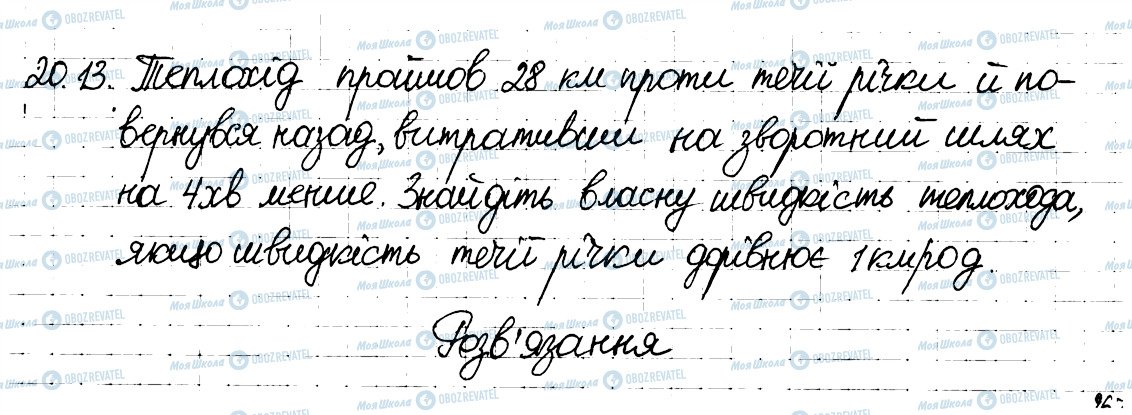 20.13. Теплохід пройшов 28 км проти течії річки й по-
вернувся назад, витративши на зворотний шлях
на 4хв менше. Знайдіть власну швидкість теплохода,
якщо швидкість течії річки дорівнює 1км/год.
Розв'язання